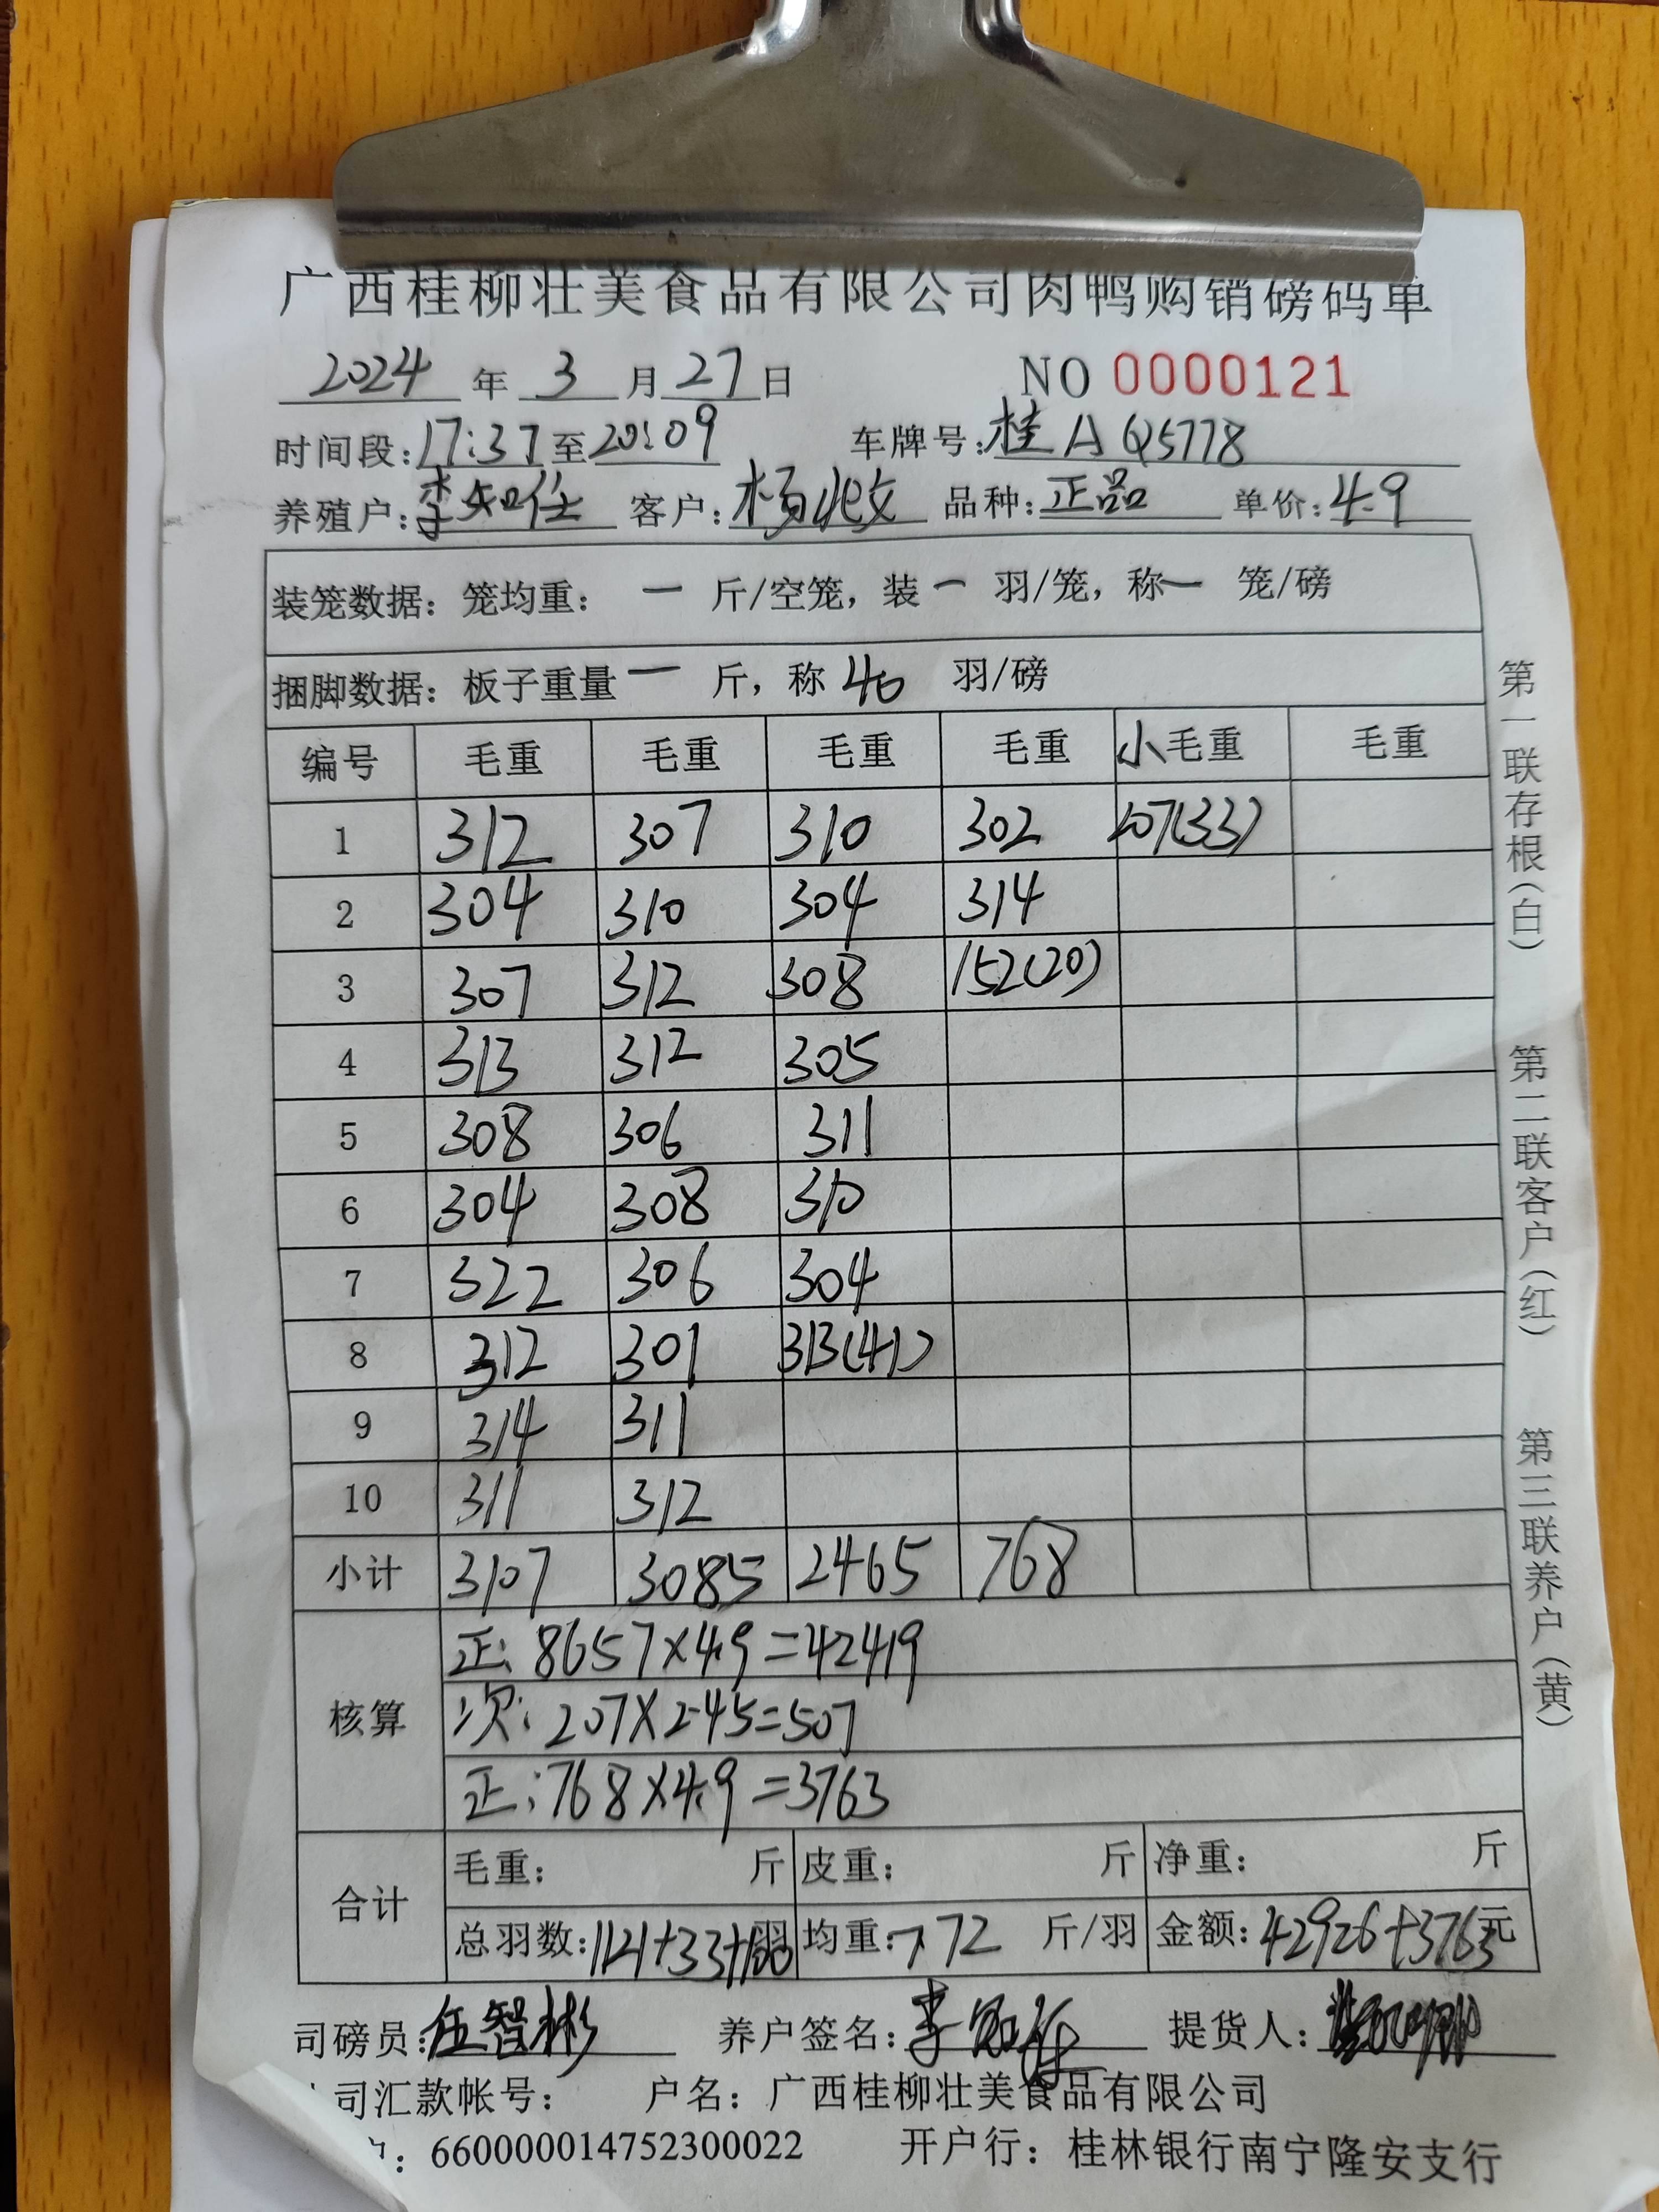 广西桂柳壮美食品有限公司肉鸭购销磅码单
2024 年 3 月 27 日 NO 0000121
时间段:17:37 至 20:09 车牌号:桂A Q5778
养殖户:李知任 客户:杨兆文 品种:正品 单价:4.9
装笼数据: 笼均重: 一 斤/空笼, 装 一 羽/笼, 称 一 笼/磅
捆脚数据: 板子重量 一 斤, 称 40 羽/磅
编号 毛重 毛重 毛重 毛重 小毛重 毛重
1 312 307 310 302 207(33)
2 304 310 304 314
3 307 312 308 152(20)
4 313 312 305
5 308 306 311
6 304 308 310
7 322 306 304
8 312 301 313(41)
9 314 311
10 311 312
小计 3107 3085 2465 768
核算
正: 8657×4.9=42419
次: 207×2.45=507
正: 768×4.9=3763
合计
毛重: 斤 皮重: 斤 净重: 斤
总羽数:1121+33+100羽 均重:7.72 斤/羽 金额:42926+3763元
司磅员:伍智彬 养户签名:李 提货人:
司汇款帐号: 户名: 广西桂柳壮美食品有限公司
: 660000014752300022 开户行: 桂林银行南宁隆安支行
第一联存根(白)
第二联客户(红)
第三联养户(黄)